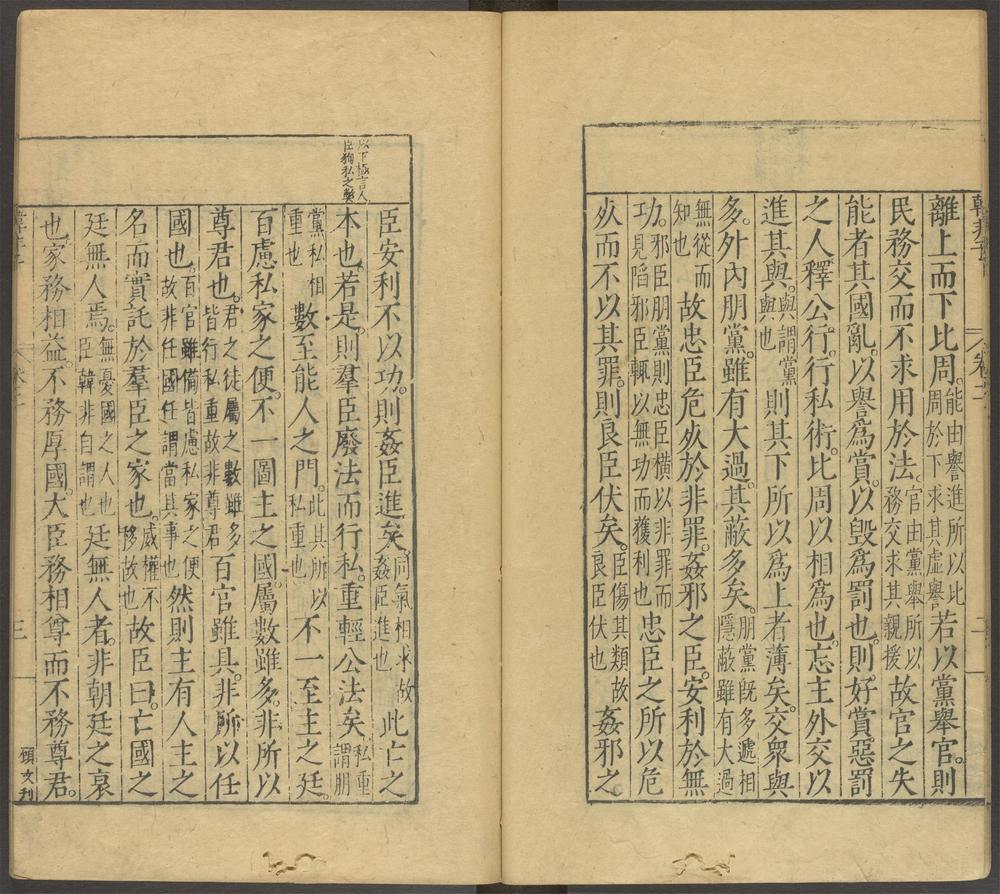 離上而下比周能由譽進所以比周於下求其虛譽若以黨舉官則
民務交而不求用於法官由黨舉所以務交求其親援故官之失
能者其國亂以譽為賞以毀為罰也則好賞惡罰
之人釋公行行私術比周以相為也忘主外交以
進其與與謂黨與也則其下所以為上者薄矣交衆與
多外內朋黨雖有大過其蔽多矣朋黨既多遞相隱蔽雖有大過
無從而知也故忠臣危死於非罪姦邪之臣安利於無
功邪臣朋黨則忠臣橫以非罪而功見陷邪臣輒以無功而獲利也忠臣之所以危
死而不以其罪則良臣伏矣臣傷其類故良臣伏也姦邪之
以下極言人臣狥私之獘
臣安利不以功則姦臣進矣同氣相求故姦臣進也此亡之
本也若是則羣臣廢法而行私重輕公法矣私重謂朋
黨私相重也數至能人之門此其所以私重也不一至主之廷
百慮私家之便不一圖主之國屬數雖多非所以
尊君也君之徒屬之數雖多皆行私重故非尊君百官雖具非所以任
國也百官雖備皆慮私家之便故非任國任謂當其事也然則主有人主之
名而實託於羣臣之家也威權不移故也故臣曰亡國之
廷無人焉無憂國之人也臣韓非自謂也廷無人者非朝廷之衰
也家務相益不務厚國大臣務相尊而不務尊君
三
顧文刋